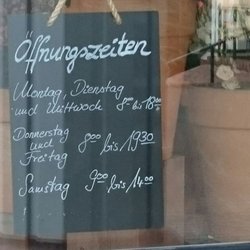 Öffnungszeiten
Montag, Dienstag
und Mittwoch 8⁰⁰ bis 18⁰⁰
Donnerstag
und 8⁰⁰ bis 19³⁰
Freitag
Samstag 9⁰⁰ bis 14⁰⁰